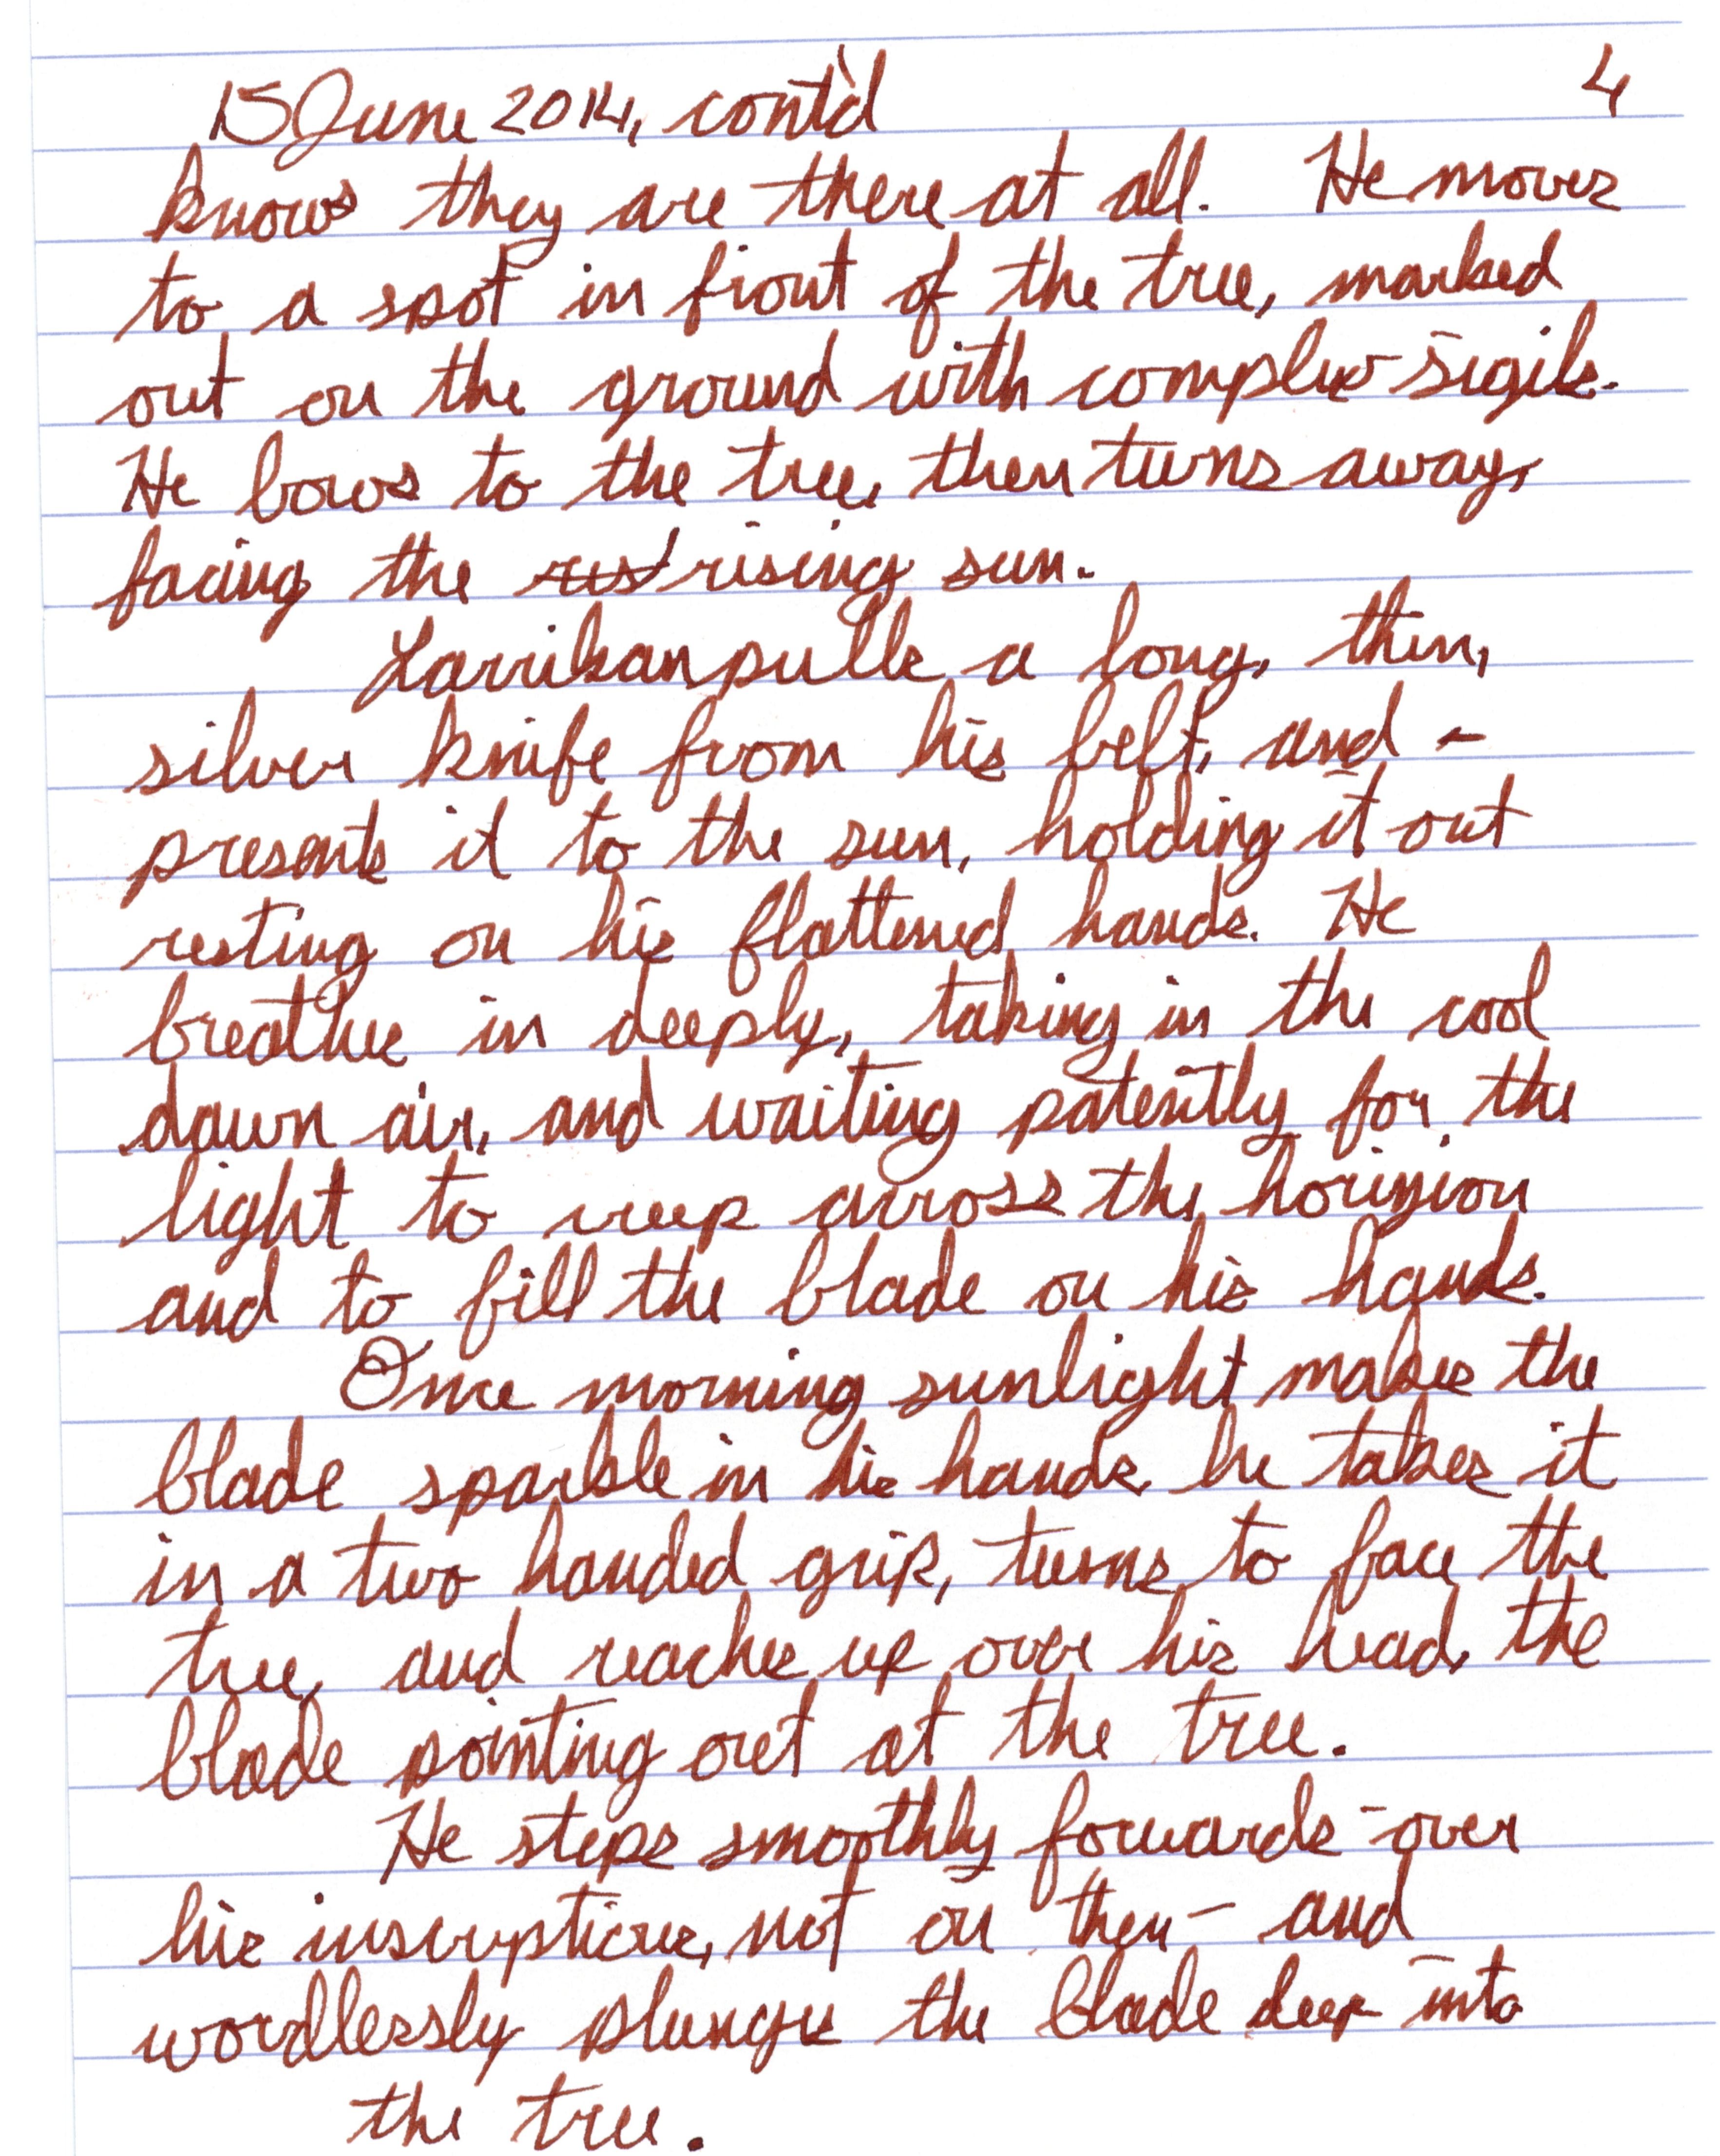 15 June 2014, cont'd 4
knows they are there at all. He moves
to a spot in front of the tree, marked
out on the ground with complex sigils.
He bows to the tree, then turns away,
facing the ris rising sun.
Larrikan pulls a long, thin,
silver knife from his belt, and -
presents it to the sun, holding it out
resting on his flattened hands. He
breathes in deeply, taking in the cool
dawn air, and waiting patently for the
light to creep across the horizion
and to fill the blade on his hands.
Once morning sunlight makes the
blade sparkle in his hands, he takes it
in a two handed grip, turns to face the
tree, and reaches up over his head, the
blade pointing out at the tree.
He steps smoothly forwards - over
his inscriptions, not on them - and
wordlessly plunges the blade deep into
the tree.